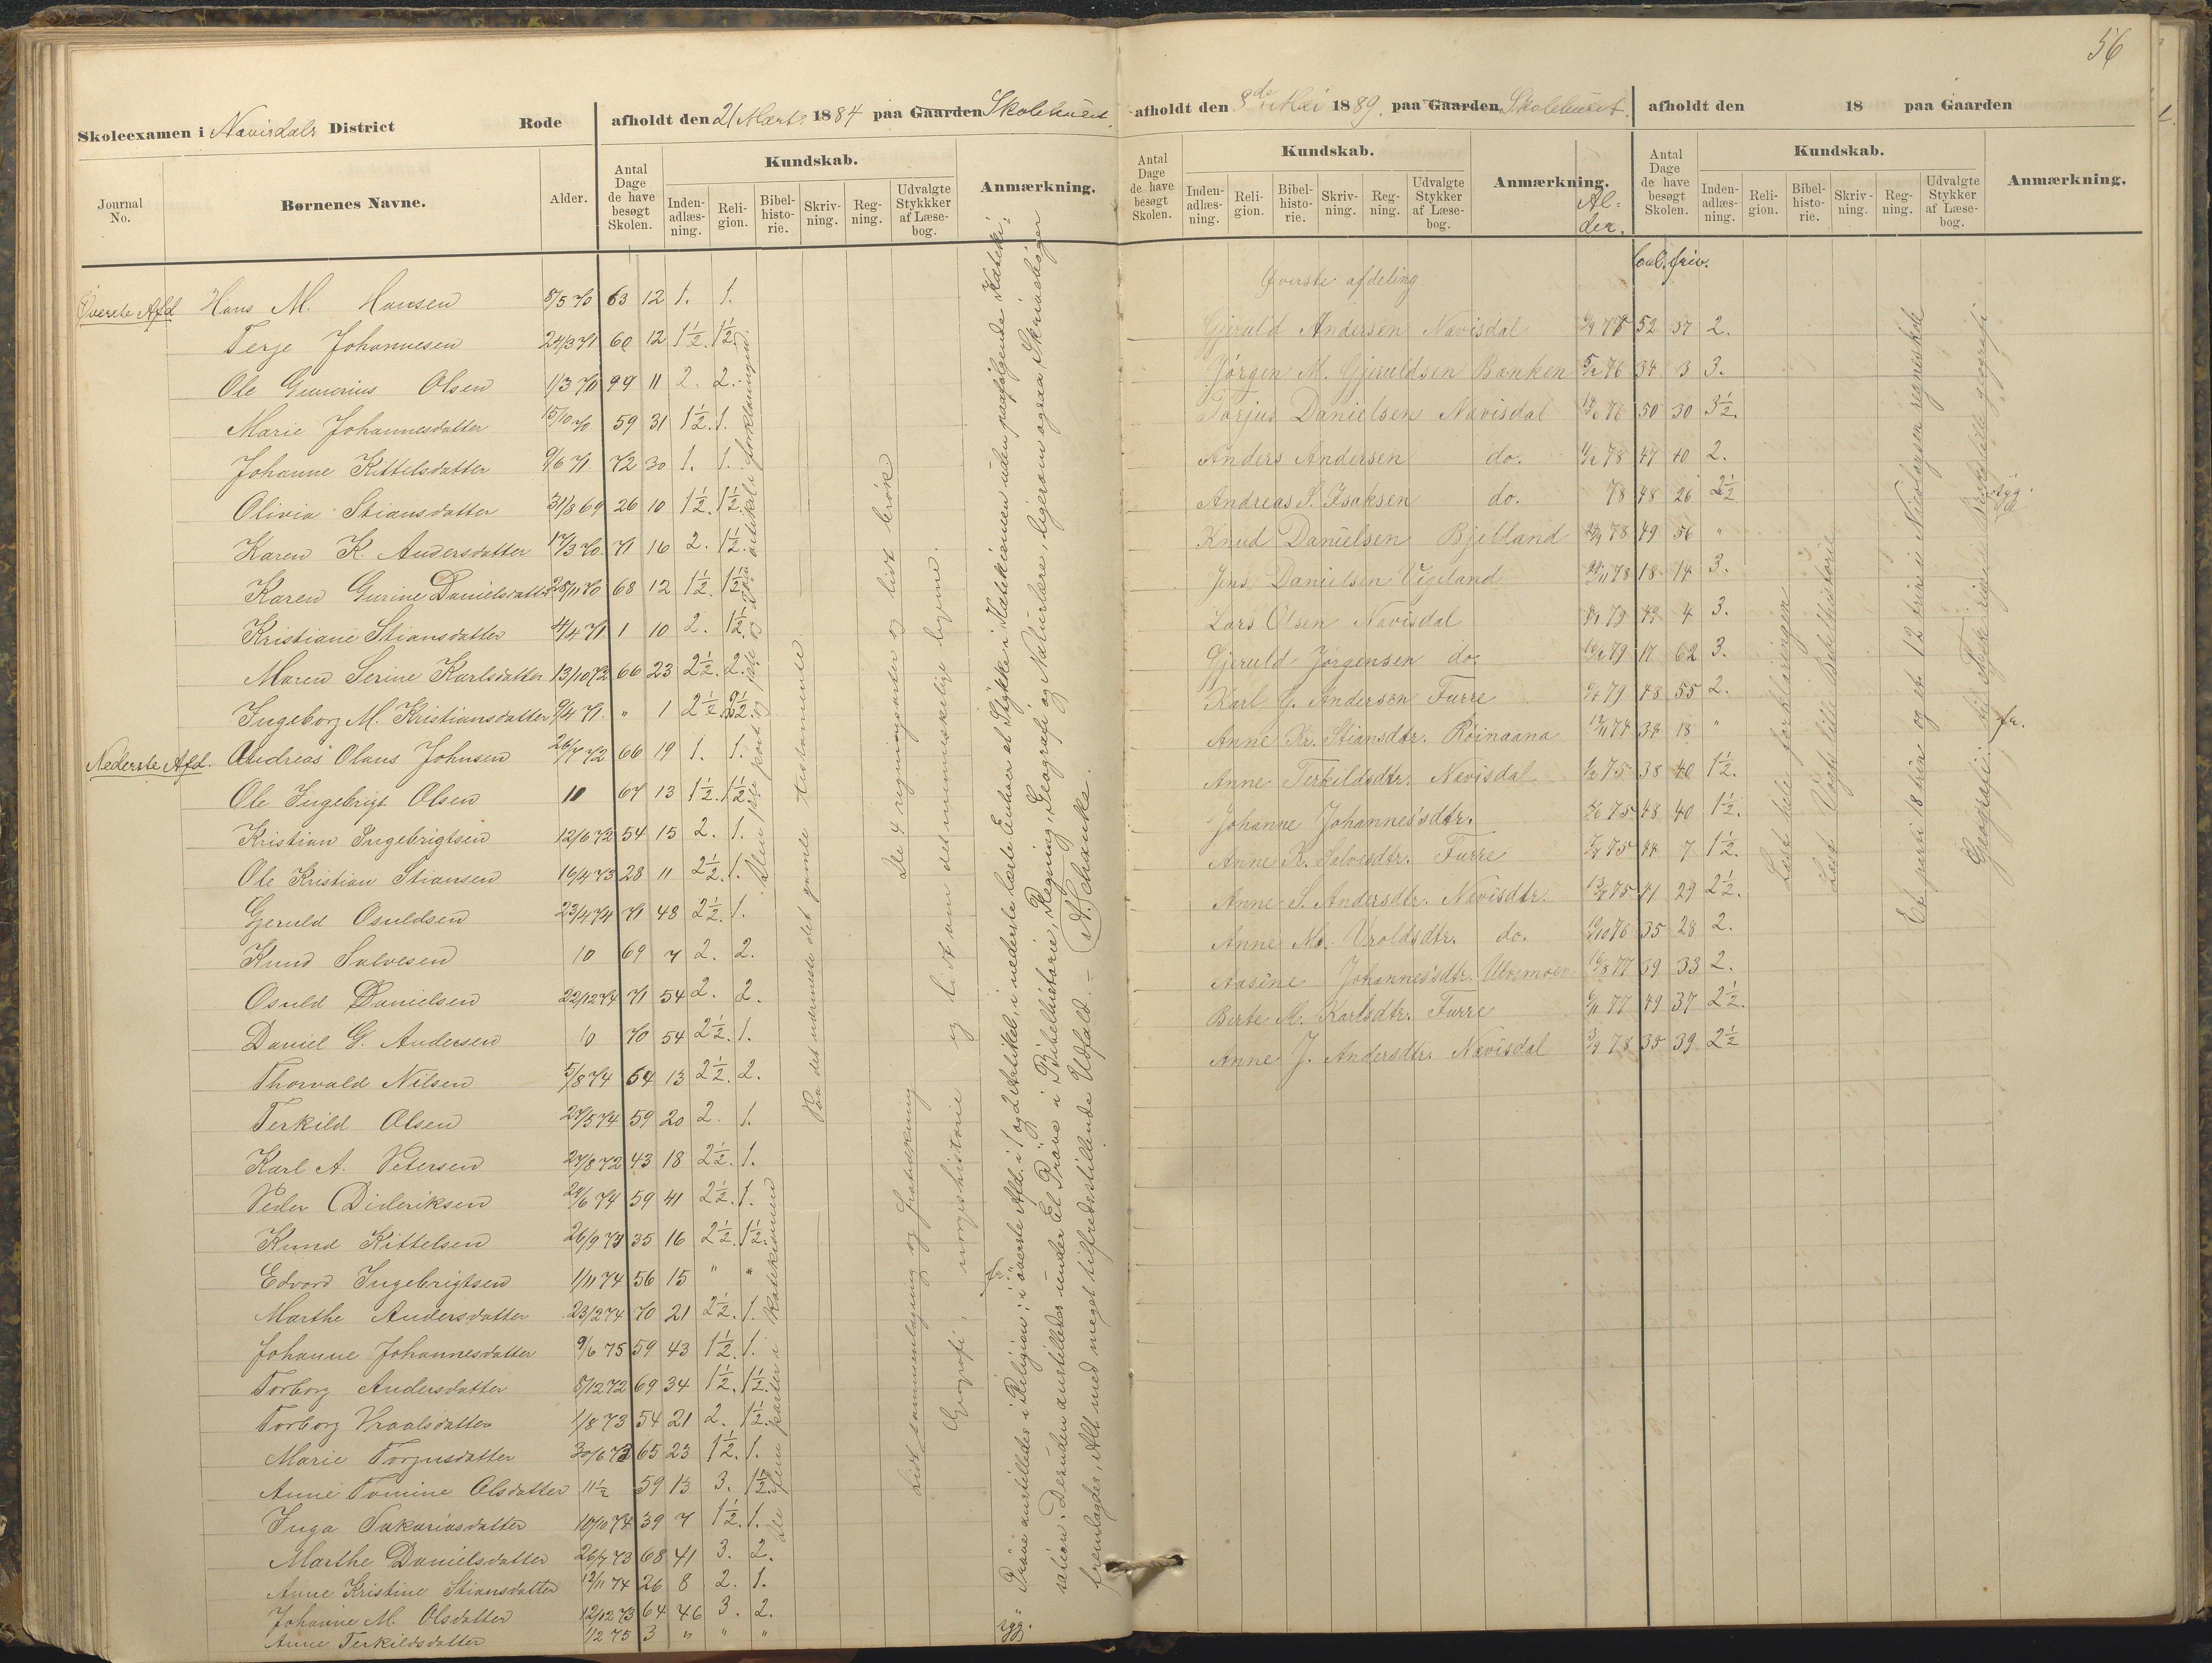 56
Skoleexamen i Navisdals District Rode
afholdt den 21 Marts 1884 paa Gaarden Skolehuset.
Journal No.
Børnenes Navne.
Alder.
Antal Dage de have besøgt Skolen.
Kundskab.
Inden-adlæs-ning.
Reli-gion.
Bibel-histo-rie.
Skriv-ning.
Reg-ning.
Udvalgte Stykkker af Læse-bog.
Anmærkning.
Øverste Afd. Hans M. Hansen 8/5 70 63 12 1. 1.
Terje Johannesen 24/3 71 60 12 1½. 1½.
Ole Gunerius Olsen 1/3 70 99 11 2. 2.
Marie Johannesdatter 15/10 70 59 31 1½. 1.
Johanne Kittelsdatter 9/6 71. 72 30 1. 1.
Olivia Stiansdatter 31/8 69 26 10 1½. 1½.
Karen K. Andersdatter 17/3 70. 71 16 2. 1½.
Karen Gurine Danielsdatter 28/11 70 68 12 1½. 1½.
Kristiane Stiansdatter 4/4 71. 1 10 2. 1½.
Maren Serine Karlsdatter 13/10 72 66 23 2½. 2.
Ingeborg M. Kristiansdatter 9/4 71. " 1 2½. 2½.
Nederste Afd. Andreas Olaus Johnsen 26/7 72 66 19 1. 1.
Ole Ingebrigt Olsen 11 67 13 1½. 1½.
Kristian Ingebrigtsen 12/6 72 54 15 2. 1.
Ole Kristian Stiansen 16/4 73 28 11 2½. 1.
Gjeruld Osuldsen 23/4 74 71 48 2½. 1.
Knud Salvesen 10 69 7 2. 2.
Osuld Danielsen 22/12 74 71 54 2. 2.
Daniel G. Andersen 10 70 54 2½. 1.
Thorvald Nilsen 5/8 74 64 13 2½. 2.
Terkild Olsen 27/5 74 59 20 2. 1.
Karl A. Petersen 27/8 72 43 18 2½. 1.
Peder Dideriksen 24/6 74 59 41 2½. 1.
Knud Kittelsen 26/9 73 35 16 2½. 1½.
Edvard Ingebrigtsen 1/11 74 56 15 " "
Marthe Andersdatter 23/2 74 70 21 2½. 1.
Johanne Johannesdatter 9/6 75 59 43 1½. 1.
Torborg Andersdatter 8/12 72 69 34 1½. 1½.
Torborg Vraalsdatter 1/8 73 54 21 2. 1½.
Marie Torjusdatter 30/6 73 65 23 1½. 1.
Anne Tomine Olsdatter 11½ 59 13 3. 1½.
Inga Sakariasdatter 10/10 74 39 7 1½. 1.
Marthe Danielsdatter 26/7 73 68 41 3. 2.
Anne Kristine Stiansdatter 12/11 74 26 8 2. 1.
Johanne M. Olsdatter 12/12 73 64 46 3. 2.
Anne Terkildsdatter 1/2 75 3 " " "
Den 1ste part og 2den artikel i forklaringen.
De fem parter i Katekismen
Paa det nærmeste det gamle testamente
De 4 regningsarter og lidt brøk
Lidt sammenlægning og fratrækning
Geografi, norgeshistorie og lidt om det menneskelige legeme.
fr.
syg.
Prøve anstilledes i Religion: i øverste Afd. i 1 og 2 Artikel, i nederste læste Enhver et Stykke i Katekismen uden paafølgende Kateki-
sation. Desuden anstilledes under Et Prøve i Bibelhistorie, Regning, Geografi og Naturlære, ligesom ogsaa Skrivebøger
fremlagdes, Alt med meget tilfredsstillende Udfald. – A. Schanke.
afholdt den 8de Mai 1889. paa Gaarden Skolehuset.
Antal Dage de have besøgt Skolen.
Kundskab.
Inden-adlæs-ning.
Reli-gion.
Bibel-histo-rie.
Skriv-ning.
Reg-ning.
Udvalgte Stykker af Læse-bog.
Anmærkning.
Al-
der.
afholdt den 18 paa Gaarden
Antal Dage de have besøgt Skolen.
Kundskab.
Inden-adlæs-ning.
Reli-gion.
Bibel-histo-rie.
Skriv-ning.
Reg-ning.
Udvalgte Stykker af Læse-bog.
Anmærkning.
friv.
Øverste afdeling
Gjeruld Andersen Navisdal 52 37 2.
Jørgen M. Gjeruldsen Banken 5/2 76 34 3 3.
Torjus Danielsen Navisdal 76 50 30 3½.
Anders Andersen do. 78 47 40 2.
Andreas S. Isaksen do. 78 48 26 2½ syg.
Knud Danielsen Bjelland 78 49 56 "
Jens Danielsen Vigeland 78 18 14 3.
Lars Olsen Navisdal 79 49 4 3.
Gjeruld Jørgensen do. 79 17 62 3.
Karl G. Andersen Furre 79 48 55 2.
Anne Kr. Stiansdtr. Røinaana 34 18 " fr.
Anne Terkildsdtr. Navisdal 1/2 75 38 40 1½.
Johanne Johannes'sdtr. 9/6 75 48 40 1½.
Anne K. Salvesdtr. Furre 75 44 7 1½.
Anne S. Andersdtr. Navisdtr. 75 41 29 2½.
Anne M. Vroldsdtr. do. 76 35 28 2.
Aasine Johannes'sdtr. 77 39 33 2.
Berte M. Karlsdtr. Furre 77 49 37 2½.
Anne J. Andersdtr. Navisdal 78 35 39 2½
Læst hele forklaringen
Læst Vogts lille Bibelhistorie
Et parti 18 brøk og et 12 brøk i Nicolaysen regnebok
Geografi: